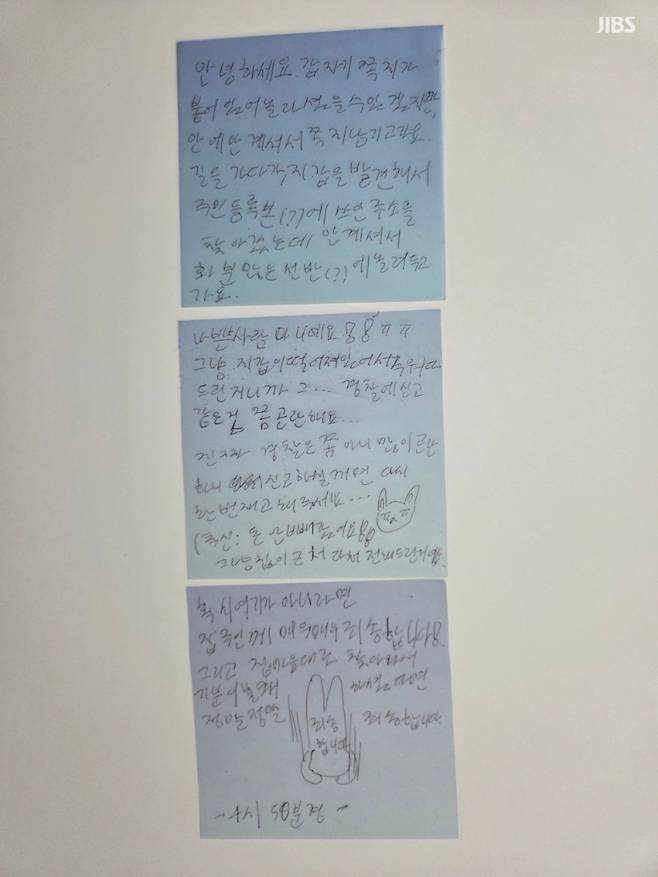 JIBS
안녕하세요. 갑자기 쪽지가
붙어있어 놀라셨을 수 있겠지만,
안에 안 계셔서 쪽지 남기고 가요.
길을 가다가 지갑을 발견해서
주민등록본(?)에 쓰인 주소를
찾아갔는데 안 계셔서
화분 있는 선반(?)에 올려두고
가요.
나쁜사람 아니에요 ㅠㅠ
그냥 지갑이 떨어져있어서 주워다
드린거니까 그... 경찰에 신고
같은 건 쫌 곤란해요...
진짜 경찰은 쫌 아니 많이 곤란
하니 신고하실꺼면 다시
한번 재고해주세요...
ㅠㅅㅠ
(혹시: 돈 안 빼갔어요
그냥 집이 근처라서 전해드린거예요
혹시 여기가 아니라면
집주인께 매우매우 죄송합니다.
그리고 집 마음대로 찾아와서
기분이 불쾌 하셨다면
정말정말 죄송합니다
죄송
합니다
-4시 50분경-